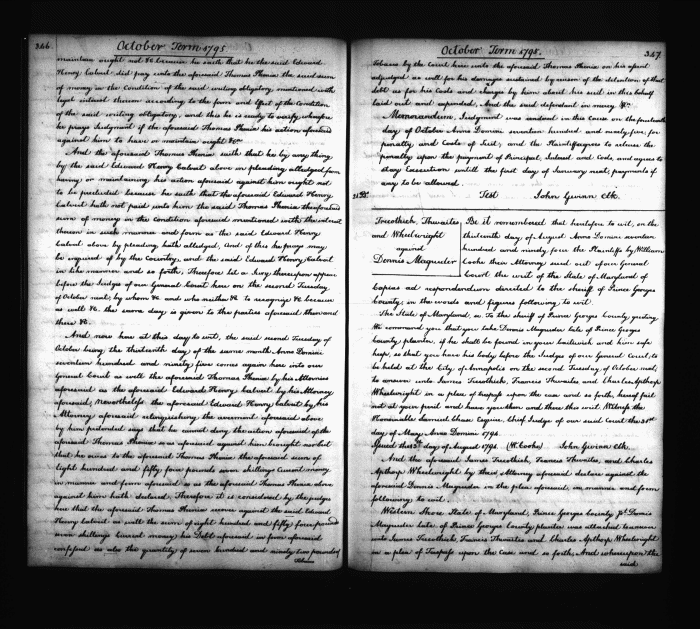 346
October Term 1795
maintain ought not &c because he saith that he the said Edward
Henry Calvert did pay unto the aforesaid Thomas Phenia the said sum
of money in the Condition of the said writing obligatory mentioned with
legal interest thereon according to the form and effect of the Condition
of the said writing obligatory, and this he is ready to verify, wherefore
he prays Judgment if the aforesaid Thomas Phenia his action aforesaid
against him to have or maintain ought &c
And the aforesaid Thomas Phenia saith that he by any thing
by the said Edward Henry Calvert above in pleading alledged from
having or maintaining his action aforesaid against him ought not
to be precluded because he saith that the aforesaid Edward Henry
Calvert hath not paid unto him the said Thomas Phenia the aforesaid
sum of money in the Condition aforesaid mentioned with the interest
thereon in such manner and form as the said Edward Henry
Calvert above by pleading hath alledged, And of this he prays may
be inquired of by the Country, and the said Edward Henry Calvert
in like manner and so forth, Therefore let a Jury thereupon appear
before the Judges of our General Court here on the second Tuesday
of October next, by whom &c and who neither &c to recognize &c because
as well &c the same day is given to the parties aforesaid then and
there &c
And now here at this day to wit, the said second Tuesday of
October being the thirteenth day of the same month Anno Domini
seventeen hundred and ninety five comes again here into our
General Court as well the aforesaid Thomas Phenia by his Attornies
aforesaid as the aforesaid Edward Henry Calvert by his Attorney
aforesaid, Nevertheless the aforesaid Edward Henry Calvert by his
Attorney aforesaid relinquishing the averment aforesaid above
by him pretended says that he cannot deny the action aforesaid of the
aforesaid Thomas Phenia as aforesaid against him brought nor but
that he owes to the aforesaid Thomas Phenia the aforesaid sum of
Eight hundred and fifty four pounds seven shillings Current money
in manner and form aforesaid as is the aforesaid Thomas Phenia above
against him hath declared, Therefore it is considered by the judges
here that the aforesaid Thomas Phenia recover against the said Edward
Henry Calvert as well the sum of eight hundred and fifty four pounds
seven shillings Current money his Debt aforesaid in form aforesaid
confessed as also the quantity of seven hundred and ninety two pounds of
October Term 1795.
347
Tobacco by the Court here unto the aforesaid Thomas Phenia on his assent
adjudged as well for his damages sustained by reason of the detention of that
debt as for his Costs and charges by him about his suit in this behalf
laid out and expended, And the said defendant in mercy &c.
Memorandum, Judgment was rendered in this cause on the fourteenth
day of October Anno Domini seventeen hundred and ninety five for
penalty and Costs of Suit, and the Plaintiff agrees to release the
penalty upon the payment of Principal, Interest and Costs, and agrees to
stay Execution untill the first day of January next, payments if
any to be allowed
Test John Gwinn Clk.
Trecothick, Thwaites
and Wheelwright
against
Dennis Magruder
Be it remembered that heretofore to wit, on the
thirteenth day of August Anno Domini seventeen
hundred and ninety four the Plaintiffs by William
Cooke their Attorney sued out of our General
Court the writ of the State of Maryland of
Capias ad respondendum directed to the sheriff of Prince Georges
County, in the words and figures following to wit.
The State of Maryland, ss. To the sheriff of Prince Georges County greeting
We command you that you take Dennis Magruder late of Prince Georges
County planter, if he shall be found in your bailiwick and him safe
keep, so that you have his body before the Judges of our General Court, to
be held at the City of Annapolis on the second Tuesday of October next,
to answer unto James Trecothick, Francis Thwaites and Charles Apthorp
Wheelwright in a plea of trespass upon the case and so forth, hereof fail
not at your peril and have you then and there this writ. Witness the
Honourable Samuel Chase Esquire, Chief Judge of our said Court the 21st
day of May Anno Domini 1794.
Issued the 13th day of August 1794. (W. Cooke) John Gwinn Clk.
And the aforesaid James Trecothick, Francis Thwaites, and Charles
Apthorp Wheelwright by their Attorney aforesaid declare against the
aforesaid Dennis Magruder in the plea aforesaid, in manner and form
following to wit.
Western Shore State of Maryland, Prince Georges County Sct. Dennis
Magruder late of Prince Georges County planter was attached to answer
unto James Trecothick, Francis Thwaites and Charles Apthorp Wheelwright
in a plea of Trespass upon the case and so forth, And whereupon the
said